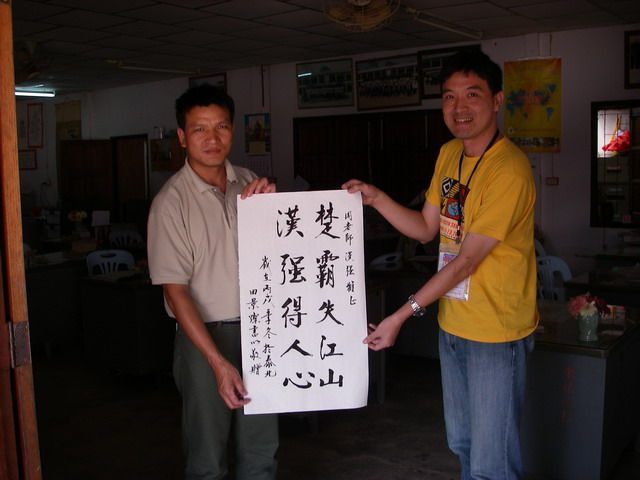 周老師漢强雅正
楚霸失江山
漢强得人心
歲在丙戌季冬於泰北
田景燦書以敬贈